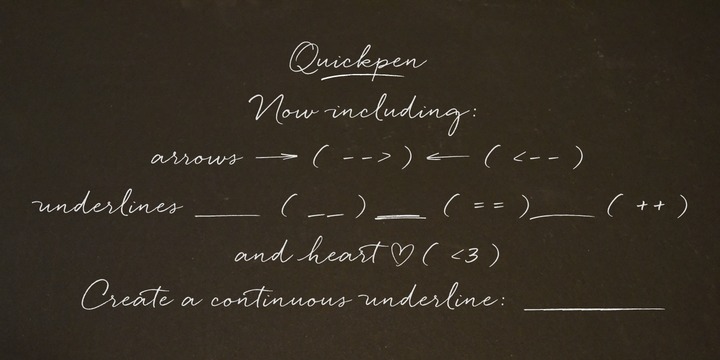 Quickpen
Now including:
arrows → ( --> ) ← ( <-- )
underlines ___ ( __ ) ___ ( == ) ___ ( ++ )
and heart ♡ ( <3 )
Create a continuous underline: ________